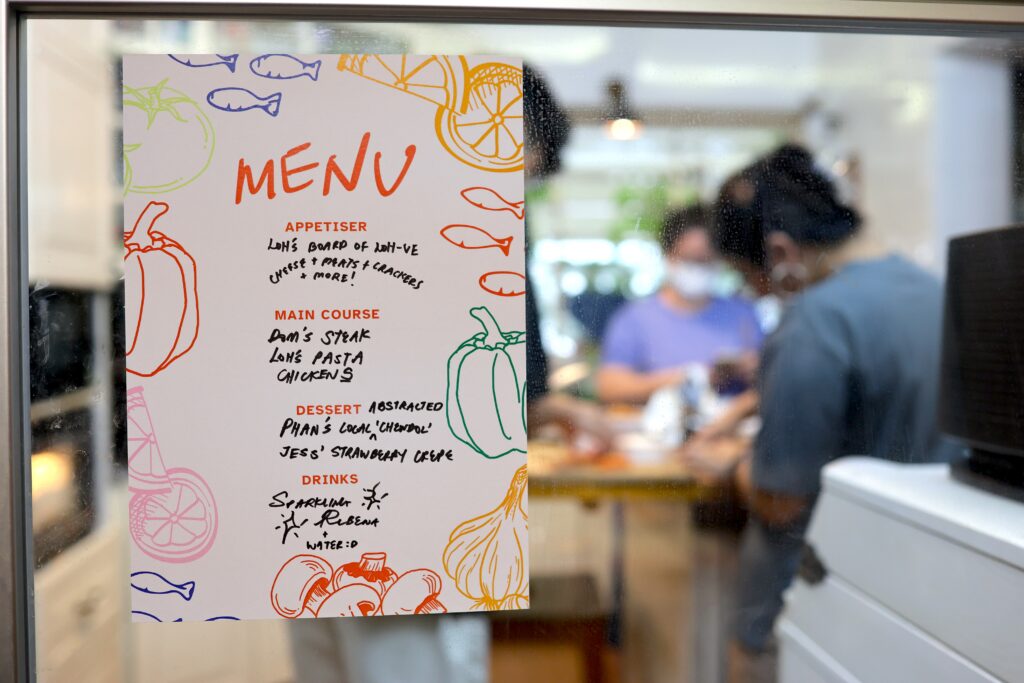 MENU
APPETISER
LOH'S BOARD OF LOH-VE
CHEESE + MEATS + CRACKERS
+ MORE!
MAIN COURSE
DOM'S STEAK
LOH'S PASTA
CHICKENS
DESSERT ABSTRACTED
PHAN'S LOCAL 'CHENDOL'
JESS' STRAWBERRY CREPE
DRINKS
SPARKLING
RIBENA
+
WATER :D